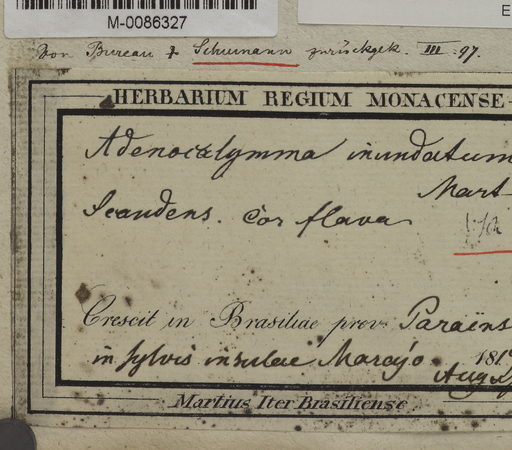 M-0086327
E
Von Bureau & Schumann zurückgek. III. 97.
HERBARIUM REGIUM MONACENSE
Adenocalymma inundatum
Mart
Scandens. Cor flava
Crescit in Brasiliae prov. Paraëns
in sylvis insulae Marajo. 181
Aug
Martius Iter Brasiliense